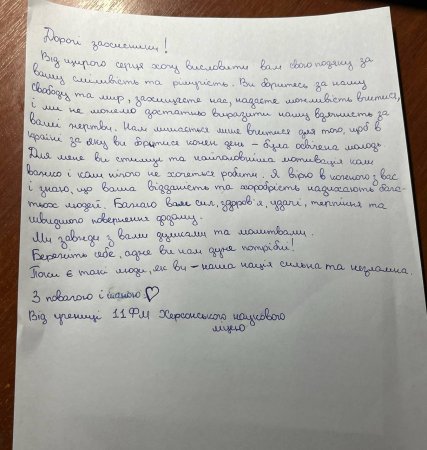 Дорогі захисники!
Від щирого серця хочу висловити вам свою подяку за
вашу сміливість та рішучість. Ви боритесь за нашу
свободу та мир, захищаєте нас, надаєте можливість вчитися,
і ми не можемо достатньо виразити нашу вдячність за
вашу жертву. Нам лишається лише вчитися для того, щоб в
країні за яку ви боритеся кожен день – була освічена молодь
Для мене ви стимул та найголовніша мотивація коли
важко і коли нічого не хочеться робити. Я вірю в кожного з вас
і знаю, що ваша відданість та хоробрість надихають бага-
тьох людей. Бажаю вам сил, здоров'я, удачі, терпіння та
швидкого повернення додому.
Ми завжди з вами думками та молитвами.
Бережіть себе, адже ви нам дуже потрібні!
Поки є такі люди, як ви – наша нація сильна та незламна.
З повагою і
Від учениці 11ФМ Херсонського наукового
ліцею